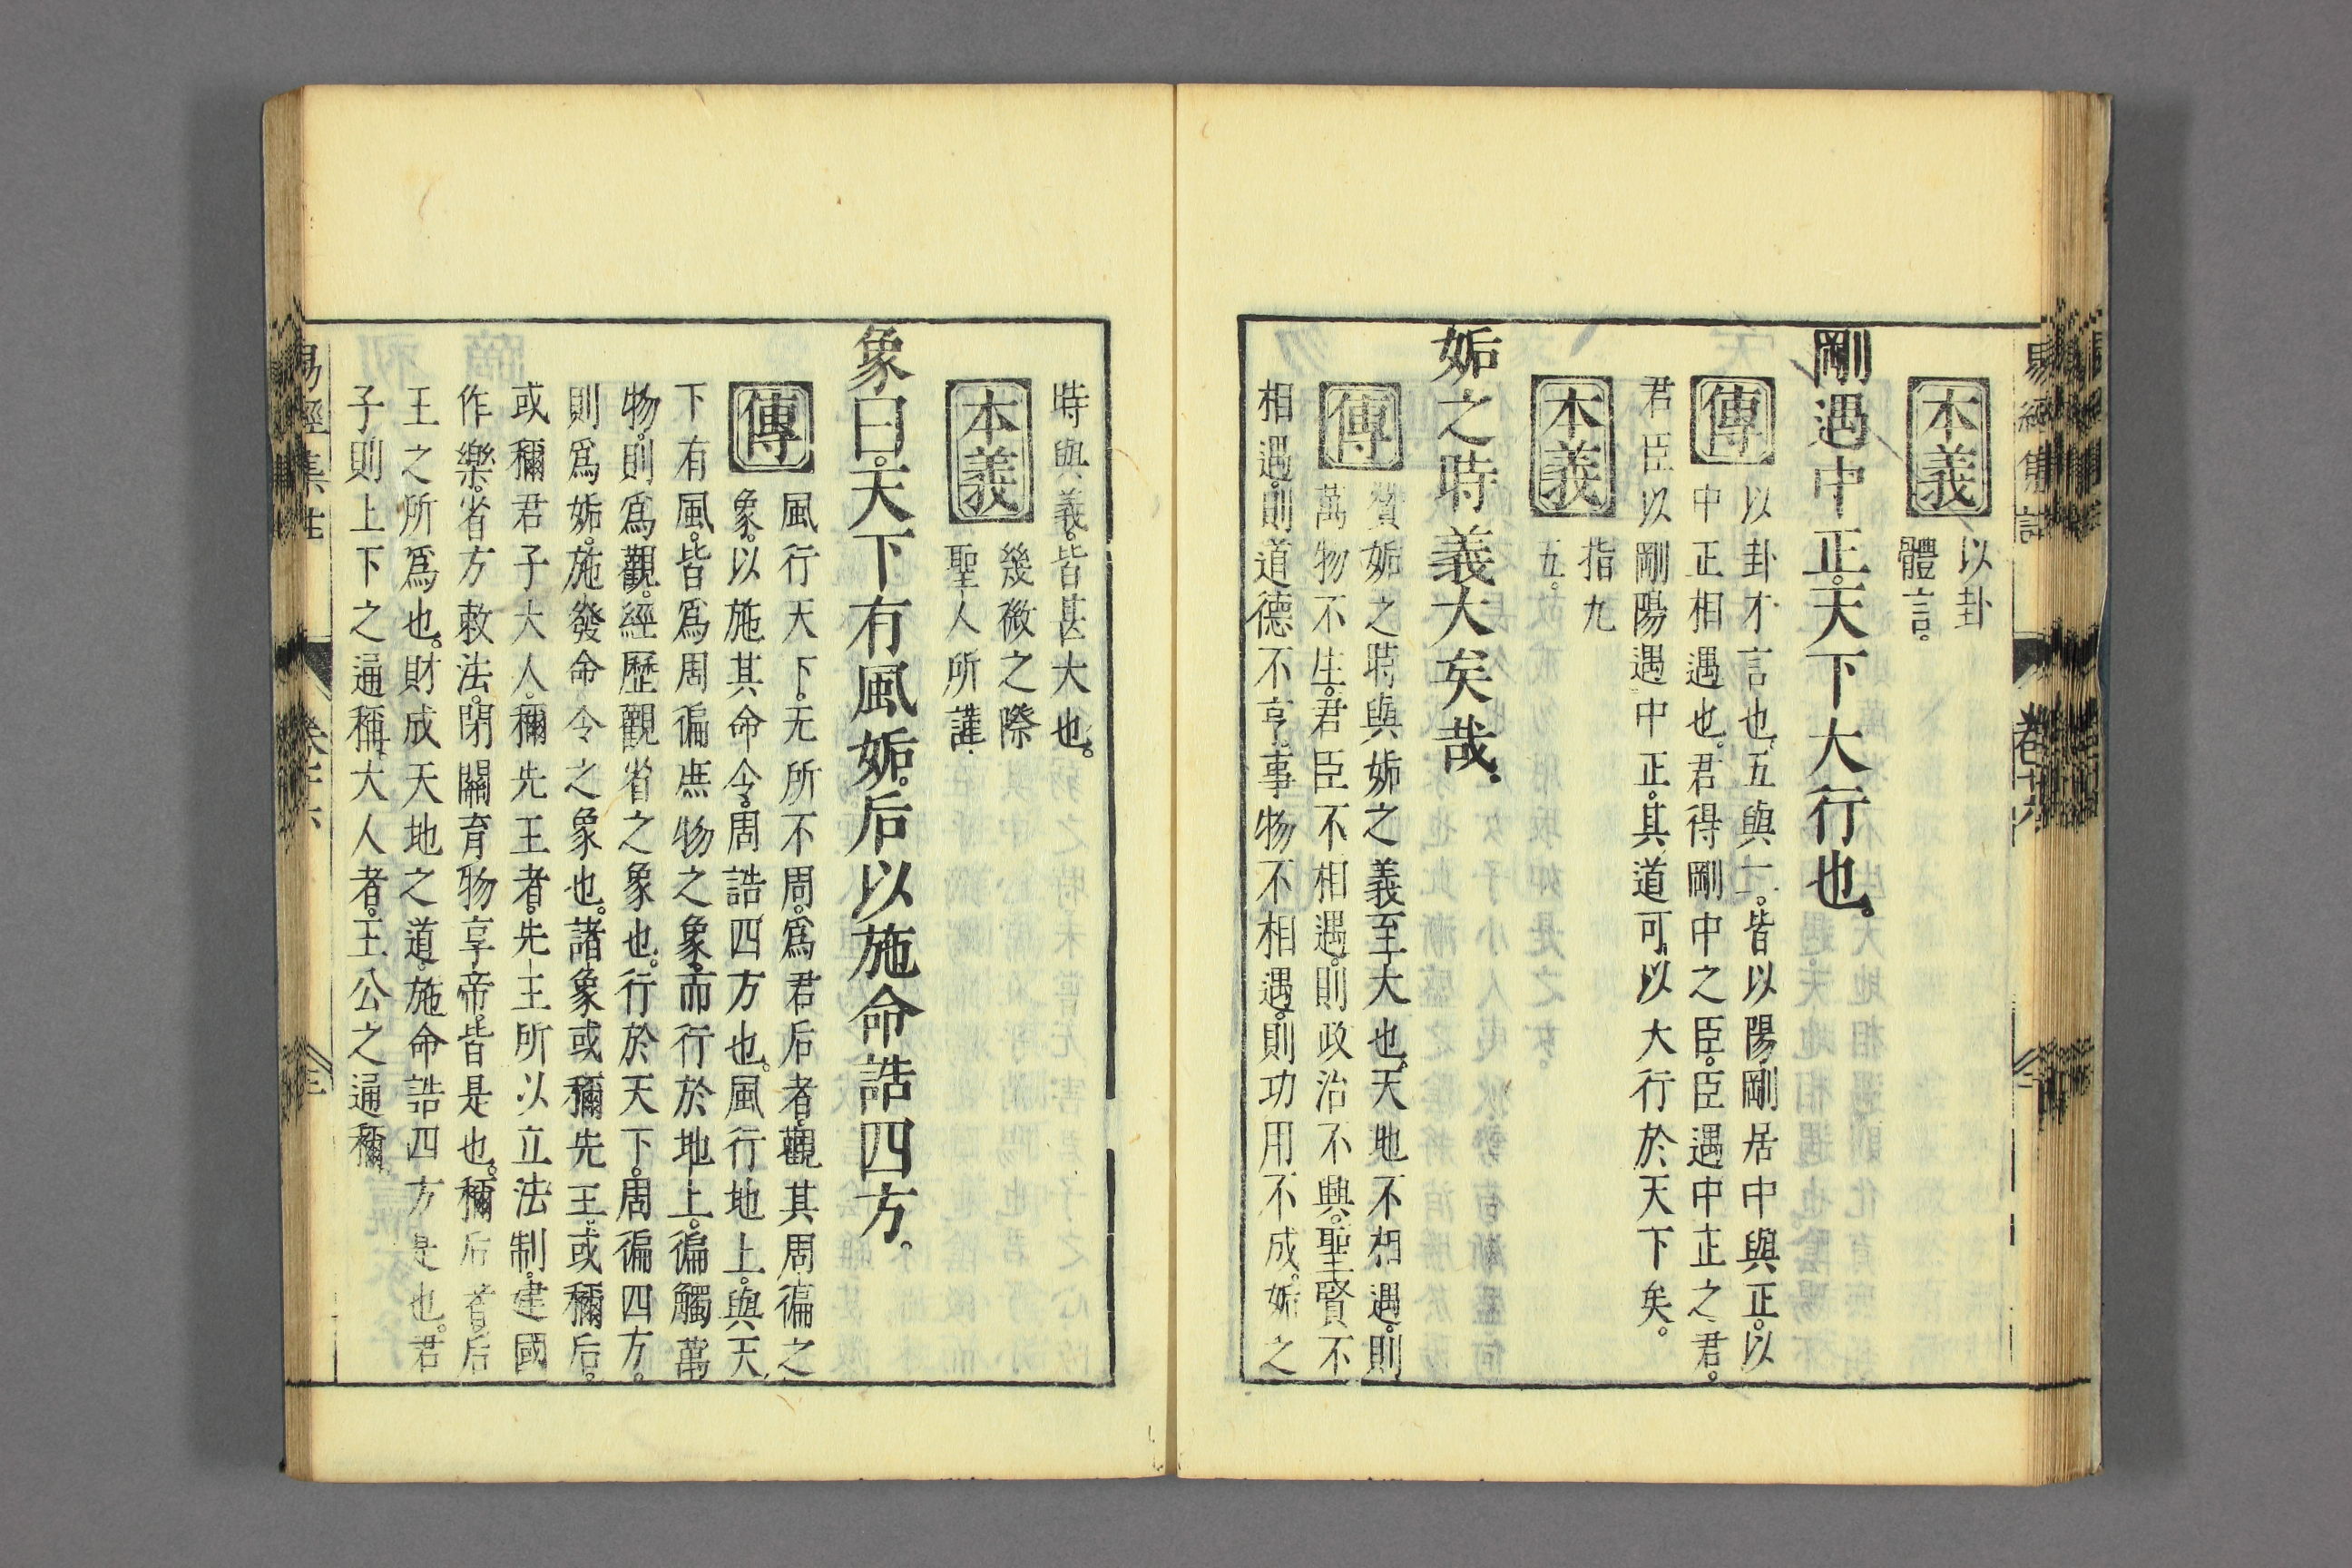 本義 以卦
體言。
剛遇中正。天下大行也。
傳 以卦才言也。五與二。皆以陽剛居中與正。以
中正相遇也。君得剛中之臣。臣遇中正之君。
君臣以剛陽遇中正。其道可以大行於天下矣。
本義 指九
五。
姤之時義大矣哉。
傳 贊姤之時與姤之義至大也。天地不相遇。則
萬物不生。君臣不相遇。則政治不興。聖賢不
相遇。則道德不亨。事物不相遇。則功用不成。姤之
時與義。皆甚大也。
本義 幾微之際
聖人所謹。
象曰。天下有風姤。后以施命誥四方。
傳 風行天下。无所不周。爲君后者。觀其周徧之
象。以施其命令。周誥四方也。風行地上。與天
下有風。皆爲周徧庶物之象。而行於地上。徧觸萬
物。則爲觀。經歷觀省之象也。行於天下。周徧四方。
則爲姤。施發命令之象也。諸象或稱先王。或稱后。
或稱君子大人。稱先王者。先王所以立法制。建國
作樂。省方敕法。閉關育物享帝。皆是也。稱后者。后
王之所爲也。財成天地之道。施命誥四方是也。君
子則上下之通稱。大人者。王公之通稱。
易經集註 卷十六